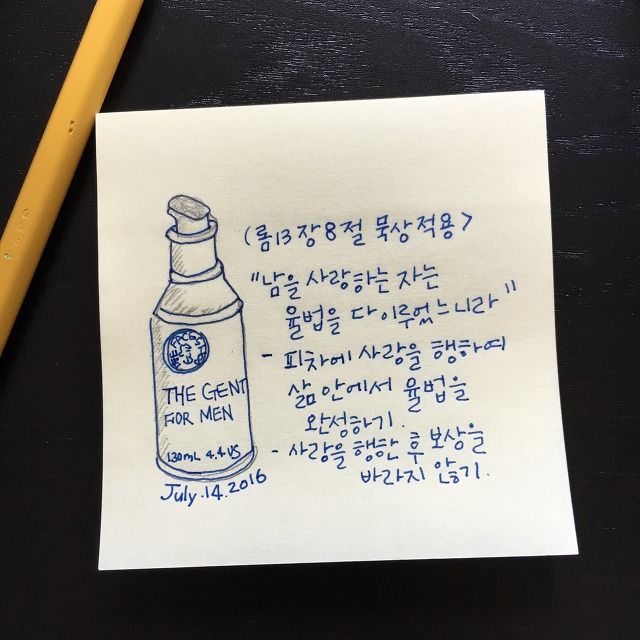 THE GENT
FOR MEN
130mL 4.4 US
July.14.2016
(롬13장8절 묵상적용>
"남을 사랑하는 자는
율법을 다 이루었느니라"
- 피차에 사랑을 행하여
삶 안에서 율법을
완성하기.
- 사랑을 행한 후 보상을
바라지 않기.